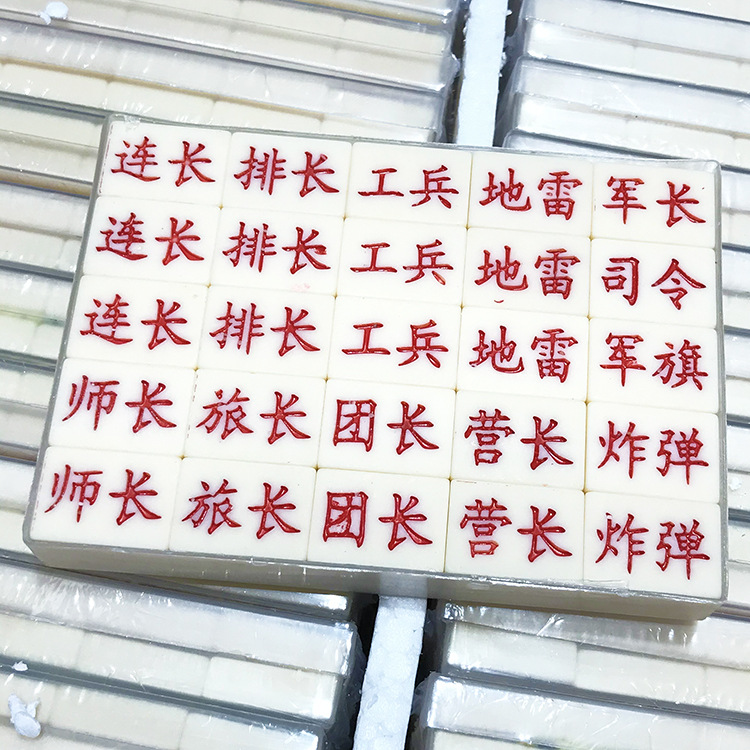 连长 排长 工兵 地雷 军长
连长 排长 工兵 地雷 司令
连长 排长 工兵 地雷 军旗
师长 旅长 团长 营长 炸弹
师长 旅长 团长 营长 炸弹